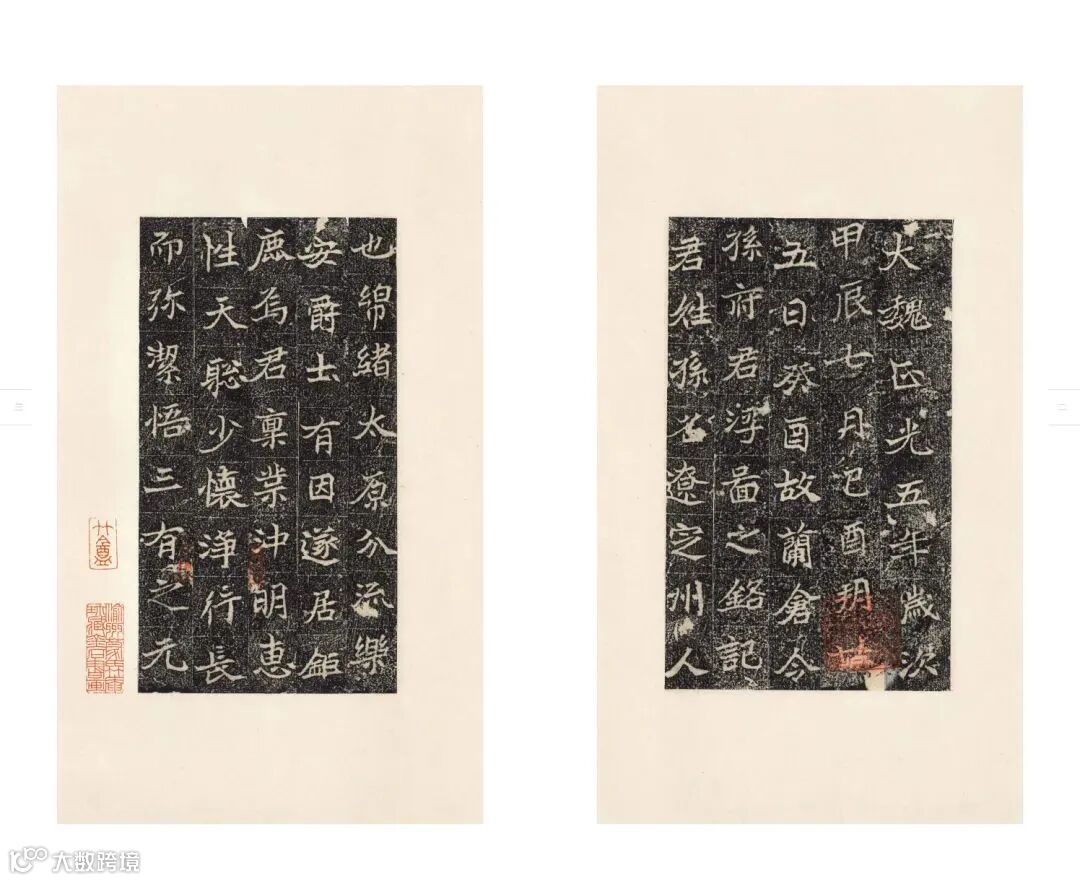 大魏正光五年歲次
甲辰七月己酉朔廿
五日癸酉故蘭倉令
孫府君浮圖之銘記
君姓孫名遼定州人
二
也綿緒太原分流樂
安爵土有因遂居鉅
鹿焉君稟業沖明惠
性天聰少懷淨行長
而弥潔悟三有之无
三
大数跨境